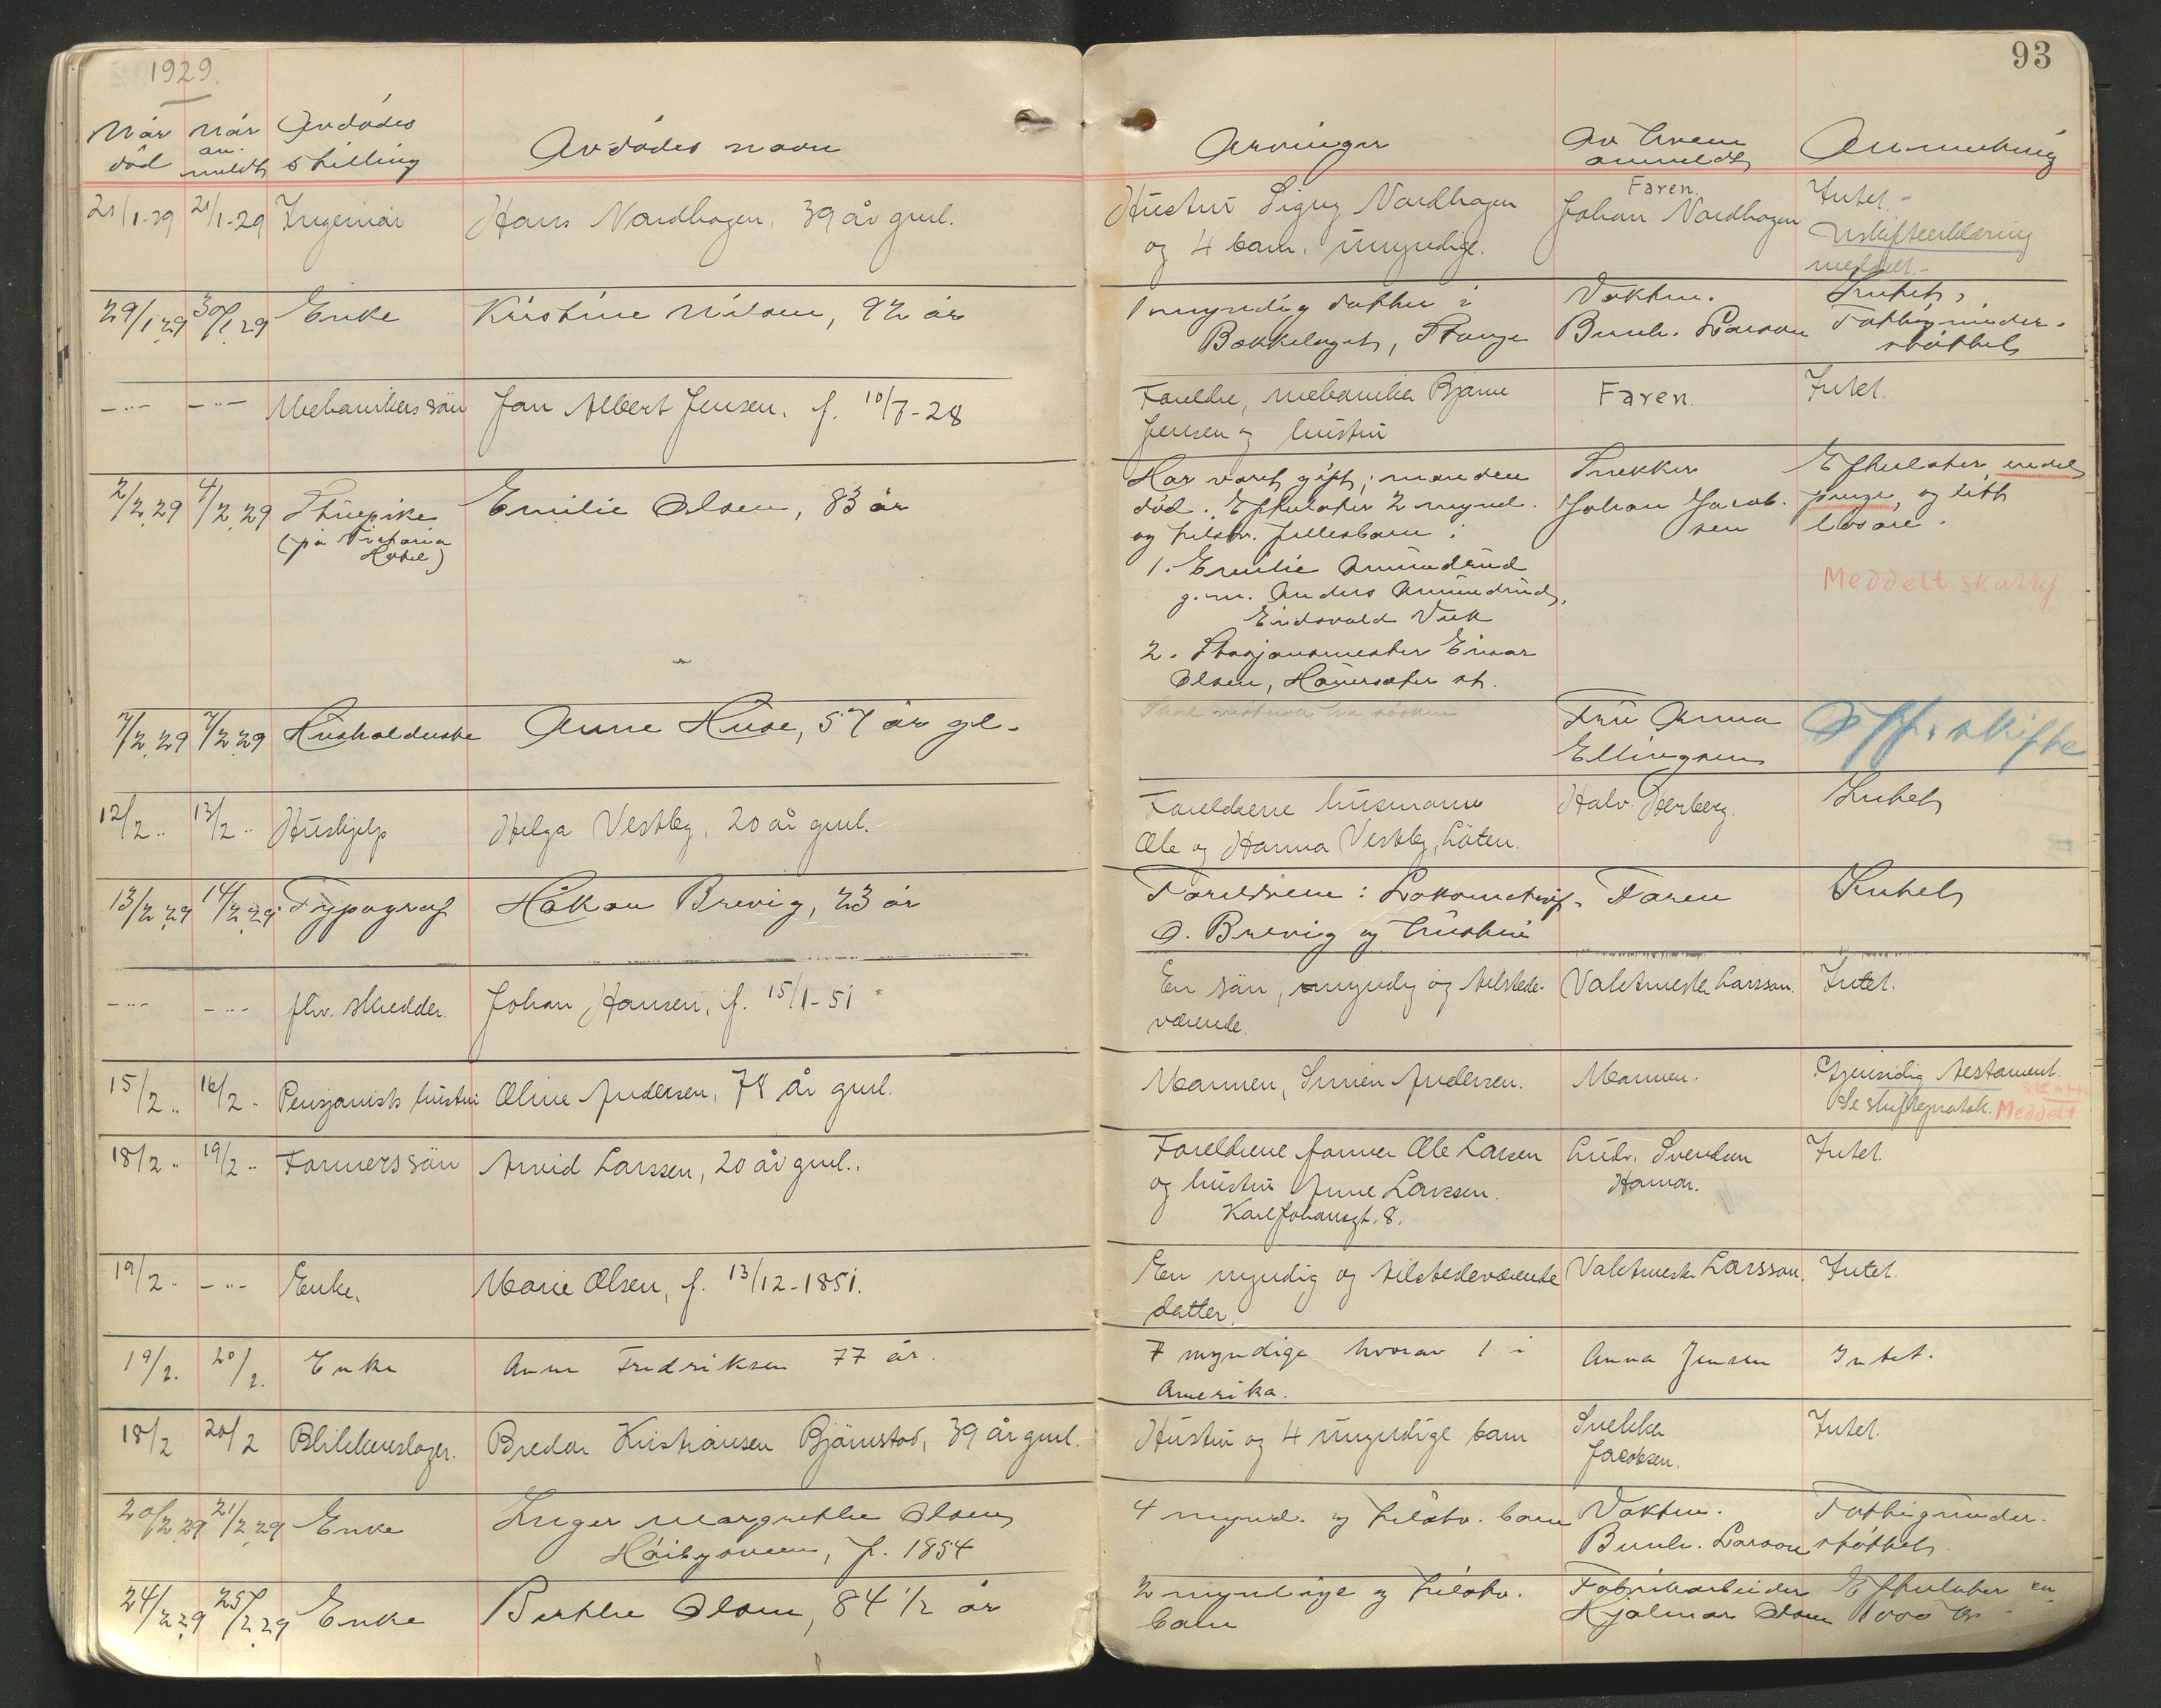 1929.
93
Når død
Når an- meldt
Avdødes stilling
Avdødes navn
Arvinger
Av hvem anmeldt
Anmerkning
21/1-29 21/1-29 Ingeniør Hans Nordhagen, 39 år gml.
Hustru Signy Nordhagen
og 4 barn, umyndige.
Faren.
Johan Nordhagen
Intet.-
Uskifteerklæring
meddelt.-
29/1 29 30/1 29 Enke Kristine Nilsen, 92 år
1 myndig datter i
Bekkelaget, Stange
Vaktm.
Bernh. Larson
Intet,
Fattigunder-
støttet
-"- -"- Mekanikers sön Jan Albert Jensen. f. 10/7-28
Foreldre, mekaniker Bjarne
Jensen og hustru
Faren.
Intet.
2/2 29 4/2 29 Stuepike
(på Victoria
Hotel)
Emilie Olsen, 83 år
Har vært gift; manden
død. Efterlater 2 mynd.
og tilstv. fellesbarn:
1. Emilie Amundrud
g.m. Anders Amundrud,
Eidsvold Verk
2. Stasjonsmester Einar
Olsen, Hauersæter st.
Snekker
Johan Jacob-
sen
Efterlater endel
penge, og litt
løsøre.
Meddelt skattef
7/2 29 7/2 29 Husholderske Anne Huse, 57 år gl.
Skal nestuen ha søsken
Fru Anna
Ellingsen
Off. skifte
12/2 " 13/2 " Hushjelp Helga Vestby, 20 år gml.
Foreldrene husmann
Ole og Hanna Vestby, Löten.
Halv. Herberg.
Intet
13/2 29 14/2 29 Typograf Håkon Brevig, 23 år
Foreldrene: Lokomotivf.
O. Brevig og hustru
Faren
Intet
-"- -"- fhv. skredder. Johan Hansen, f. 15/1-51
En sön, myndig og tilstede-
værende.
Vaktmester Larsson.
Intet.
15/2 " 16/2 " Pensjonists hustru Oline Andersen, 78 år gml.
Mannen, Simen Andersen.
Mannen.
Gjensidig testament.
Se skifteprotok.
Meddelt skatte
18/2 " 19/2 " Farmers sön Arvid Larssen, 20 år gml.
Foreldrene farmer Ole Larsen
og hustru Anne Larssen.
Karl Johansgt. 8.
Andr. Svendsen
Hamar.
Intet.
19/2 " -"- Enke. Marie Olsen, f. 13/12-1851.
En myndig og tilstedeværende
datter.
Vaktmester Larsson.
Intet.
19/2. 20/2. Enke Anne Fredriksen 77 år.
7 myndige hvorav 1 i
Amerika.
Anna Jensen
Intet.
18/2 20/2 Blikkenslager. Bredar Kristiansen Bjørnstad, 39 år gml.
Hustru og 4 umyndige barn
Snekker
Jacobsen.
Intet.
20/2 29 21/2 29 Enke Inger Margrethe Olsen
Høibysveen, f. 1854
4 mynd. og tilstv. barn
Vaktm.
Bernh. Larson
Fattigunder-
støttet
24/2 29 25/2 29 Enke Berthe Olsen, 84 1/2 år
2 myndige og tilstv.
barn
Fabrikarbeider
Hjalmar Olsen
Efterlater en
1000 kr